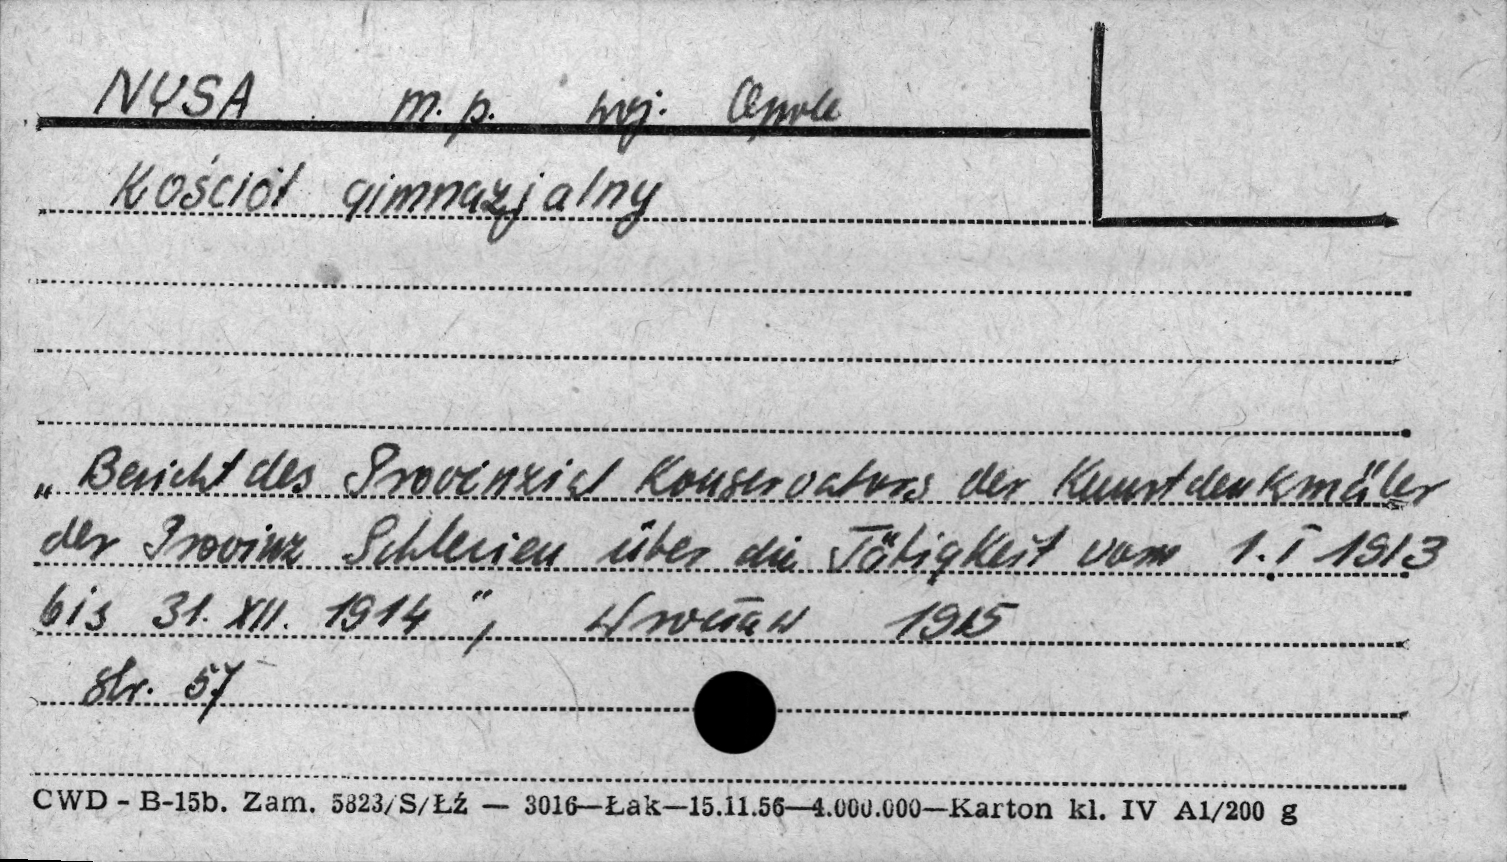 NYSA m. p. woj. Opole
Kościół gimnazjalny
„Bericht des Provinzial Konservators der Kunstdenkmäler
der Provinz Schlesien über die Tätigkeit vom 1. I 1913
bis 31. XII. 1914", Wrocław 1915
str. 57
CWD - B-15b. Zam. 5823/S/Łź — 3016—Łak—15.11.56—4.000.000—Karton kl. IV A1/200 g